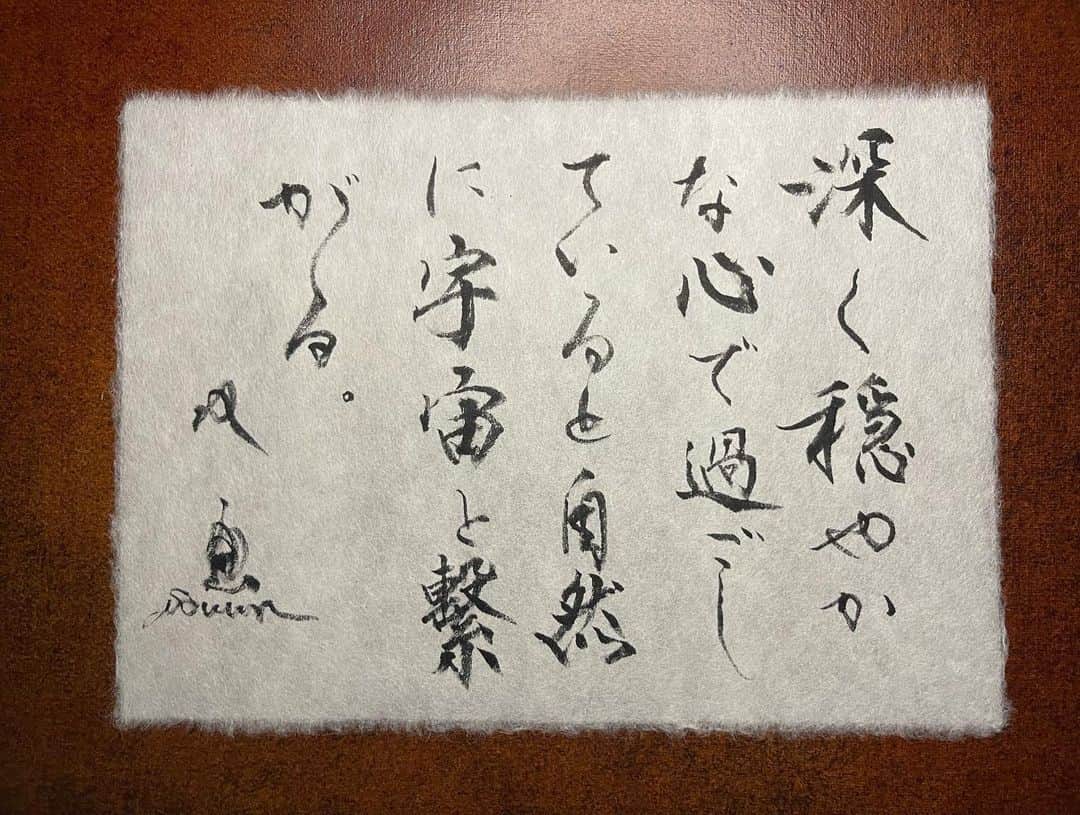 深く穏やか
な心で過ごし
ていると自然
に宇宙と繋
がる。